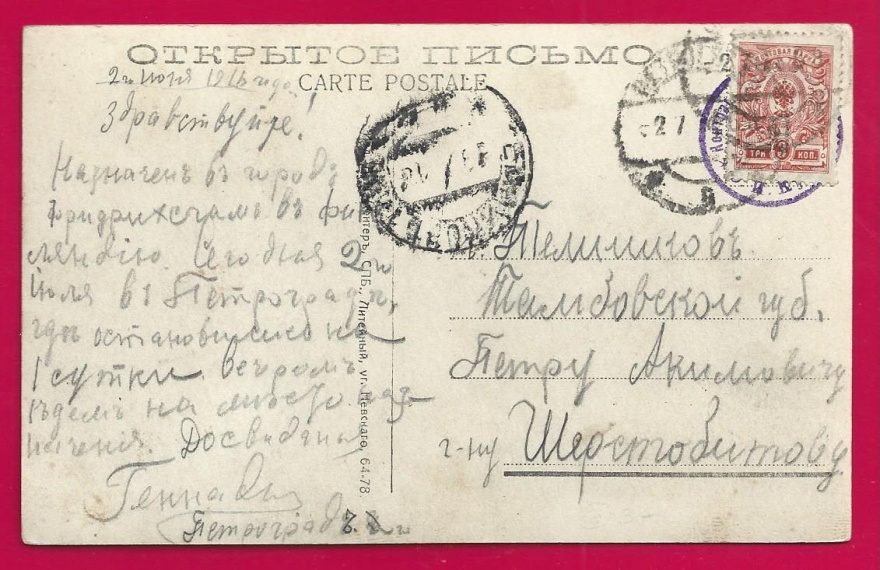 ОТКРЫТОЕ ПИСЬМО
CARTE POSTALE
2го июля 1916 года
Здравствуйте!
Назначен въ городъ
Фридрихсгамъ въ Фин
ляндію. Сегодня 2го
Июля въ Петроградѣ,
гдѣ остановились на
1 сутки. Вечеромъ
ѣдемъ на мѣсто наз-
наченія. Досвиданія
Геннадій
Петроградъ.
СПБ., Литейный, уг. Невскаго, 64-78.
Темниковъ
Тамбовской губ.
Петру Акимовичу
г-ну Шерстобитову
ТРИ 3 КОП.